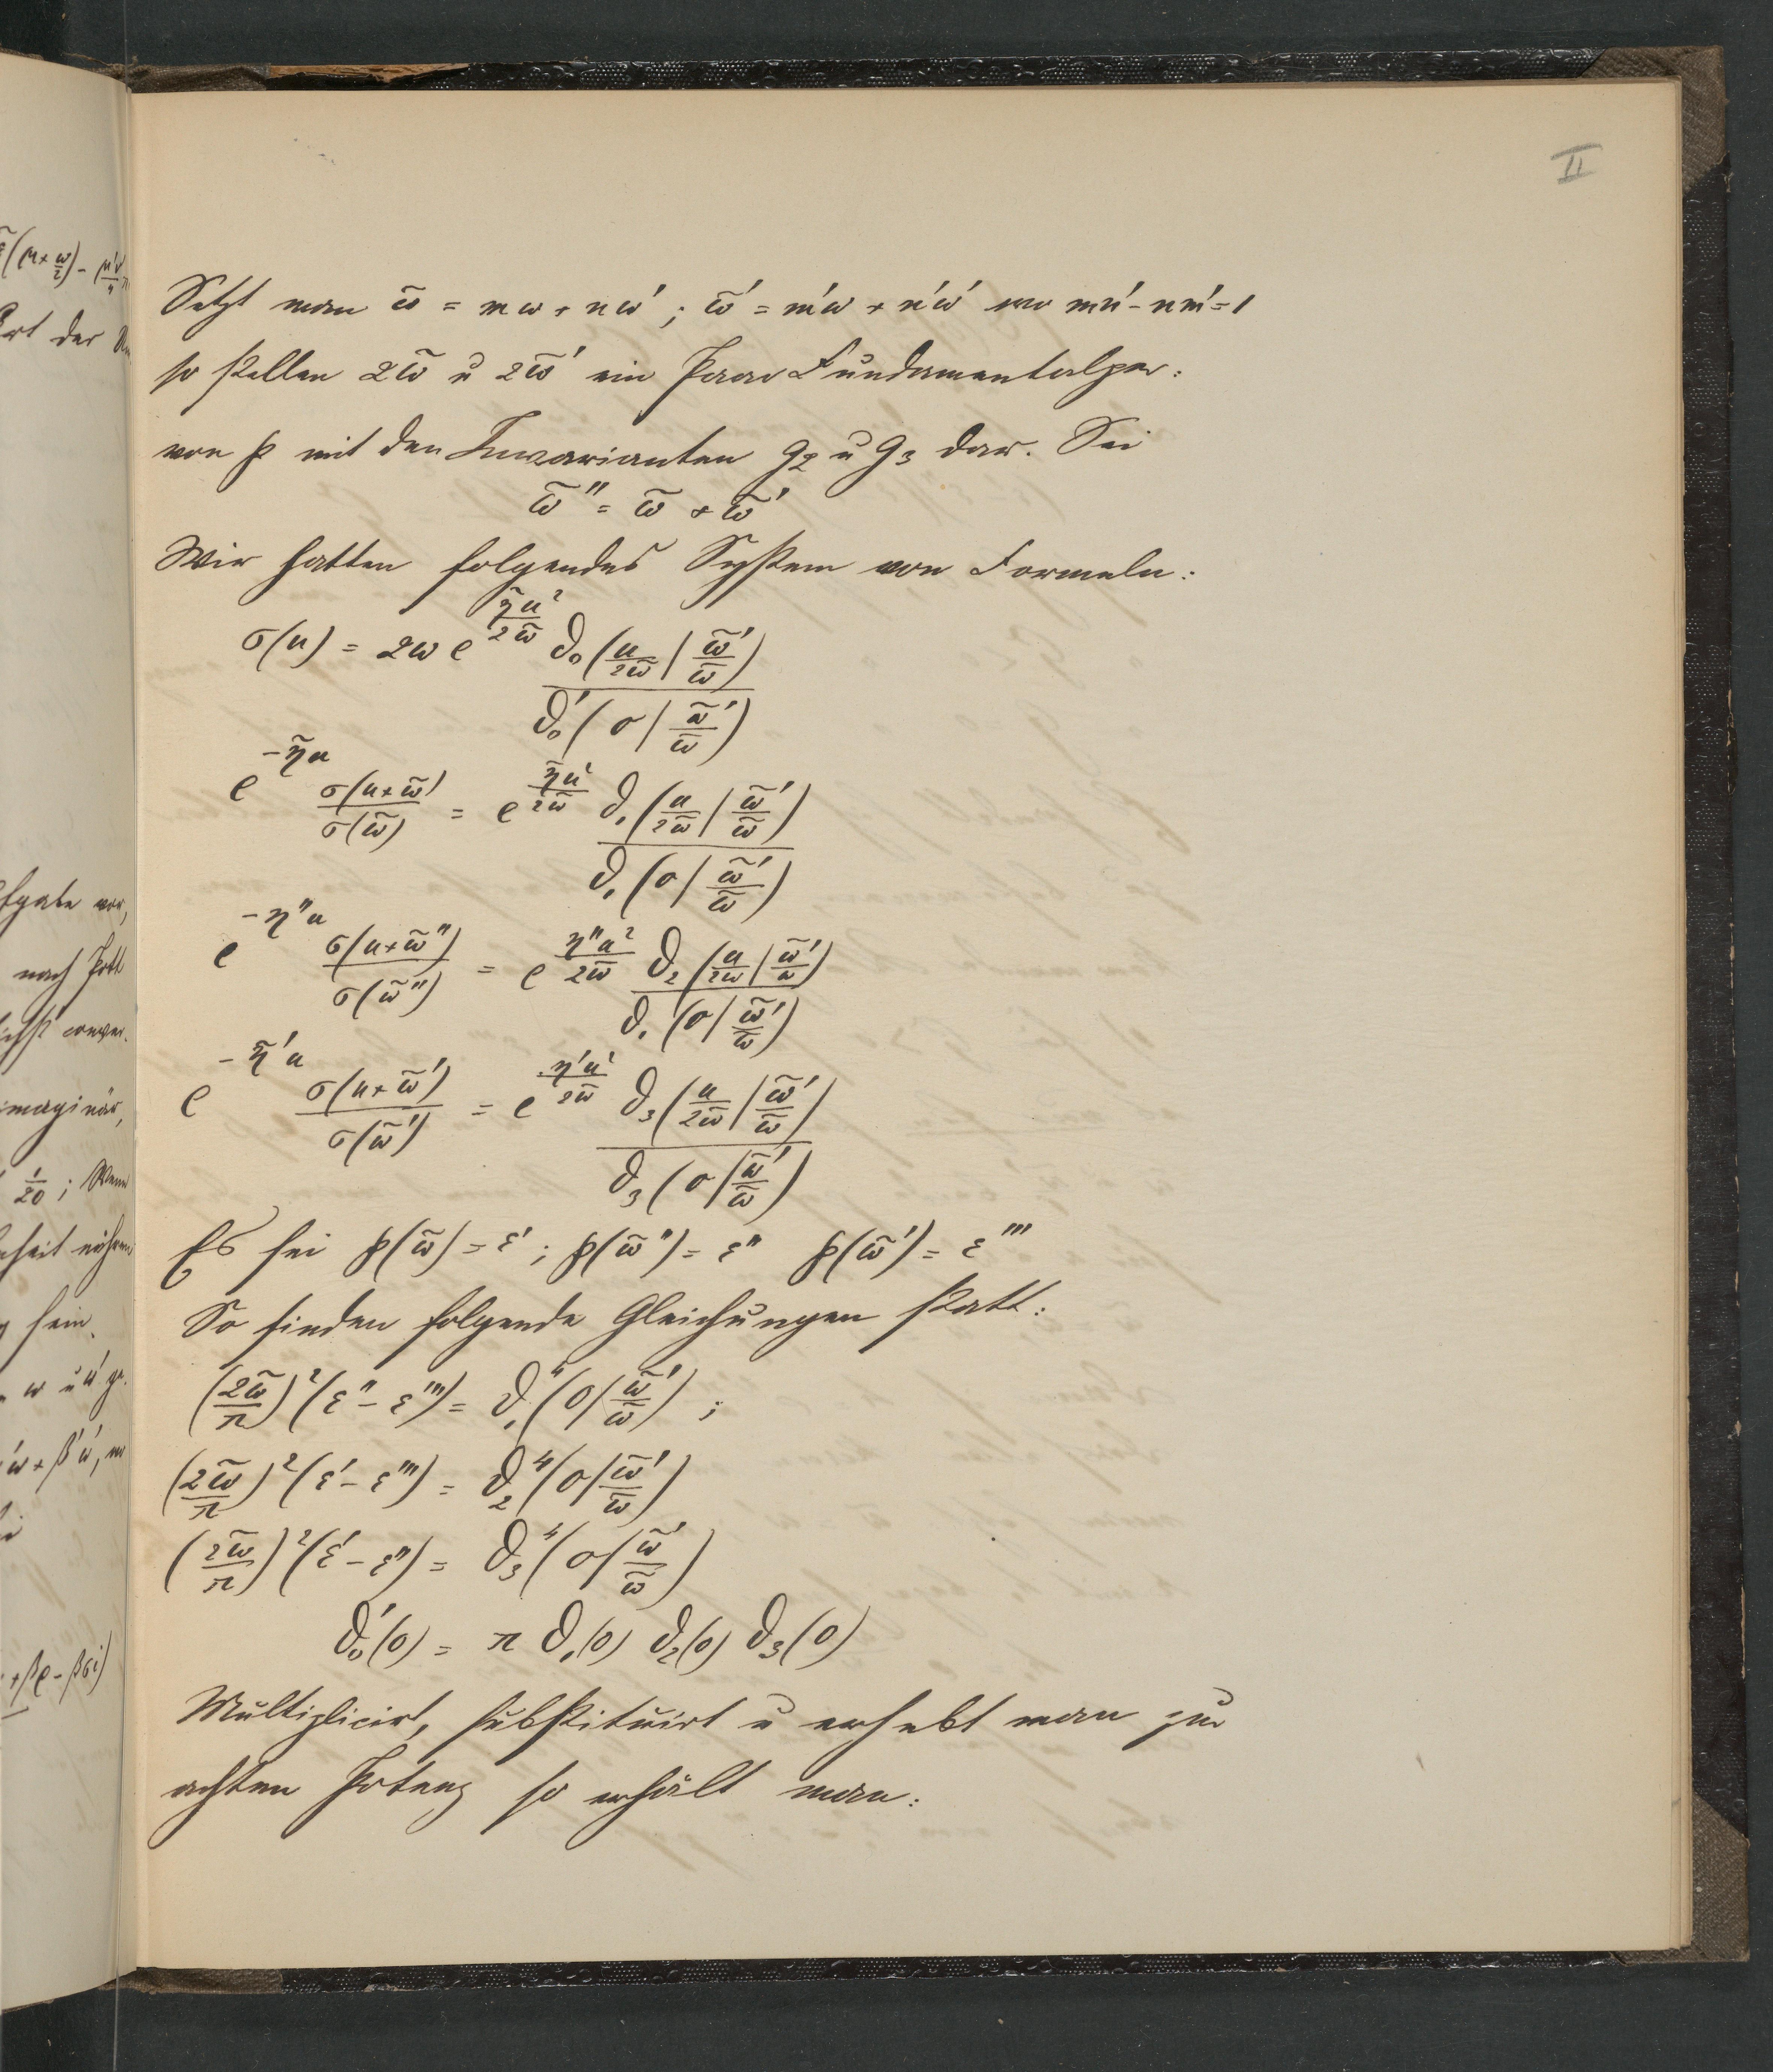 II
Setzt man ω̃ = mω + nω′ ; ω̃′ = m′ω + n′ω′ wo mn′ - nm′ = 1
so stellen 2ω̃ u 2ω̃′ ein Paar Fundamentalper:
von ℘ mit den Invarianten g₂ u g₃ dar. Sei
ω̃″ = ω̃ + ω̃′
Wir hatten folgendes System von Formeln:
σ(u) = 2ω e^{η̃u²/2ω̃} ϑ₀(u/2ω̃ | ω̃′/ω̃) / ϑ₀′(0 | ω̃′/ω̃)
e^{-η̃u} σ(u+ω̃)/σ(ω̃) = e^{η̃u²/2ω̃} ϑ₁(u/2ω̃ | ω̃′/ω̃) / ϑ₁(0 | ω̃′/ω̃)
e^{-η″u} σ(u+ω̃″)/σ(ω̃″) = e^{η″u²/2ω̃} ϑ₂(u/2ω | ω̃′/ω) / ϑ₁(0 | ω̃′/ω̃)
e^{-η̃′u} σ(u+ω̃′)/σ(ω̃′) = e^{η′u²/2ω̃} ϑ₃(u/2ω̃ | ω̃′/ω̃) / ϑ₃(0 | ω̃′/ω̃)
Es sei ℘(ω̃) = ε′ ; ℘(ω̃″) = ε″ ℘(ω̃′) = ε‴
So finden folgende Gleichungen statt:
(2ω̃/π)² (ε″ - ε‴) = ϑ₁⁴(0 | ω̃′/ω̃) ;
(2ω̃/π)² (ε′ - ε‴) = ϑ₂⁴(0 | ω̃′/ω̃)
(2ω̃/π)² (ε′ - ε″) = ϑ₃⁴(0 | ω̃′/ω̃)
ϑ₀′(0) = π ϑ₁(0) ϑ₂(0) ϑ₃(0)
Multiplicirt, substituirt u erhebt man zur
achten Potenz so erhält man: